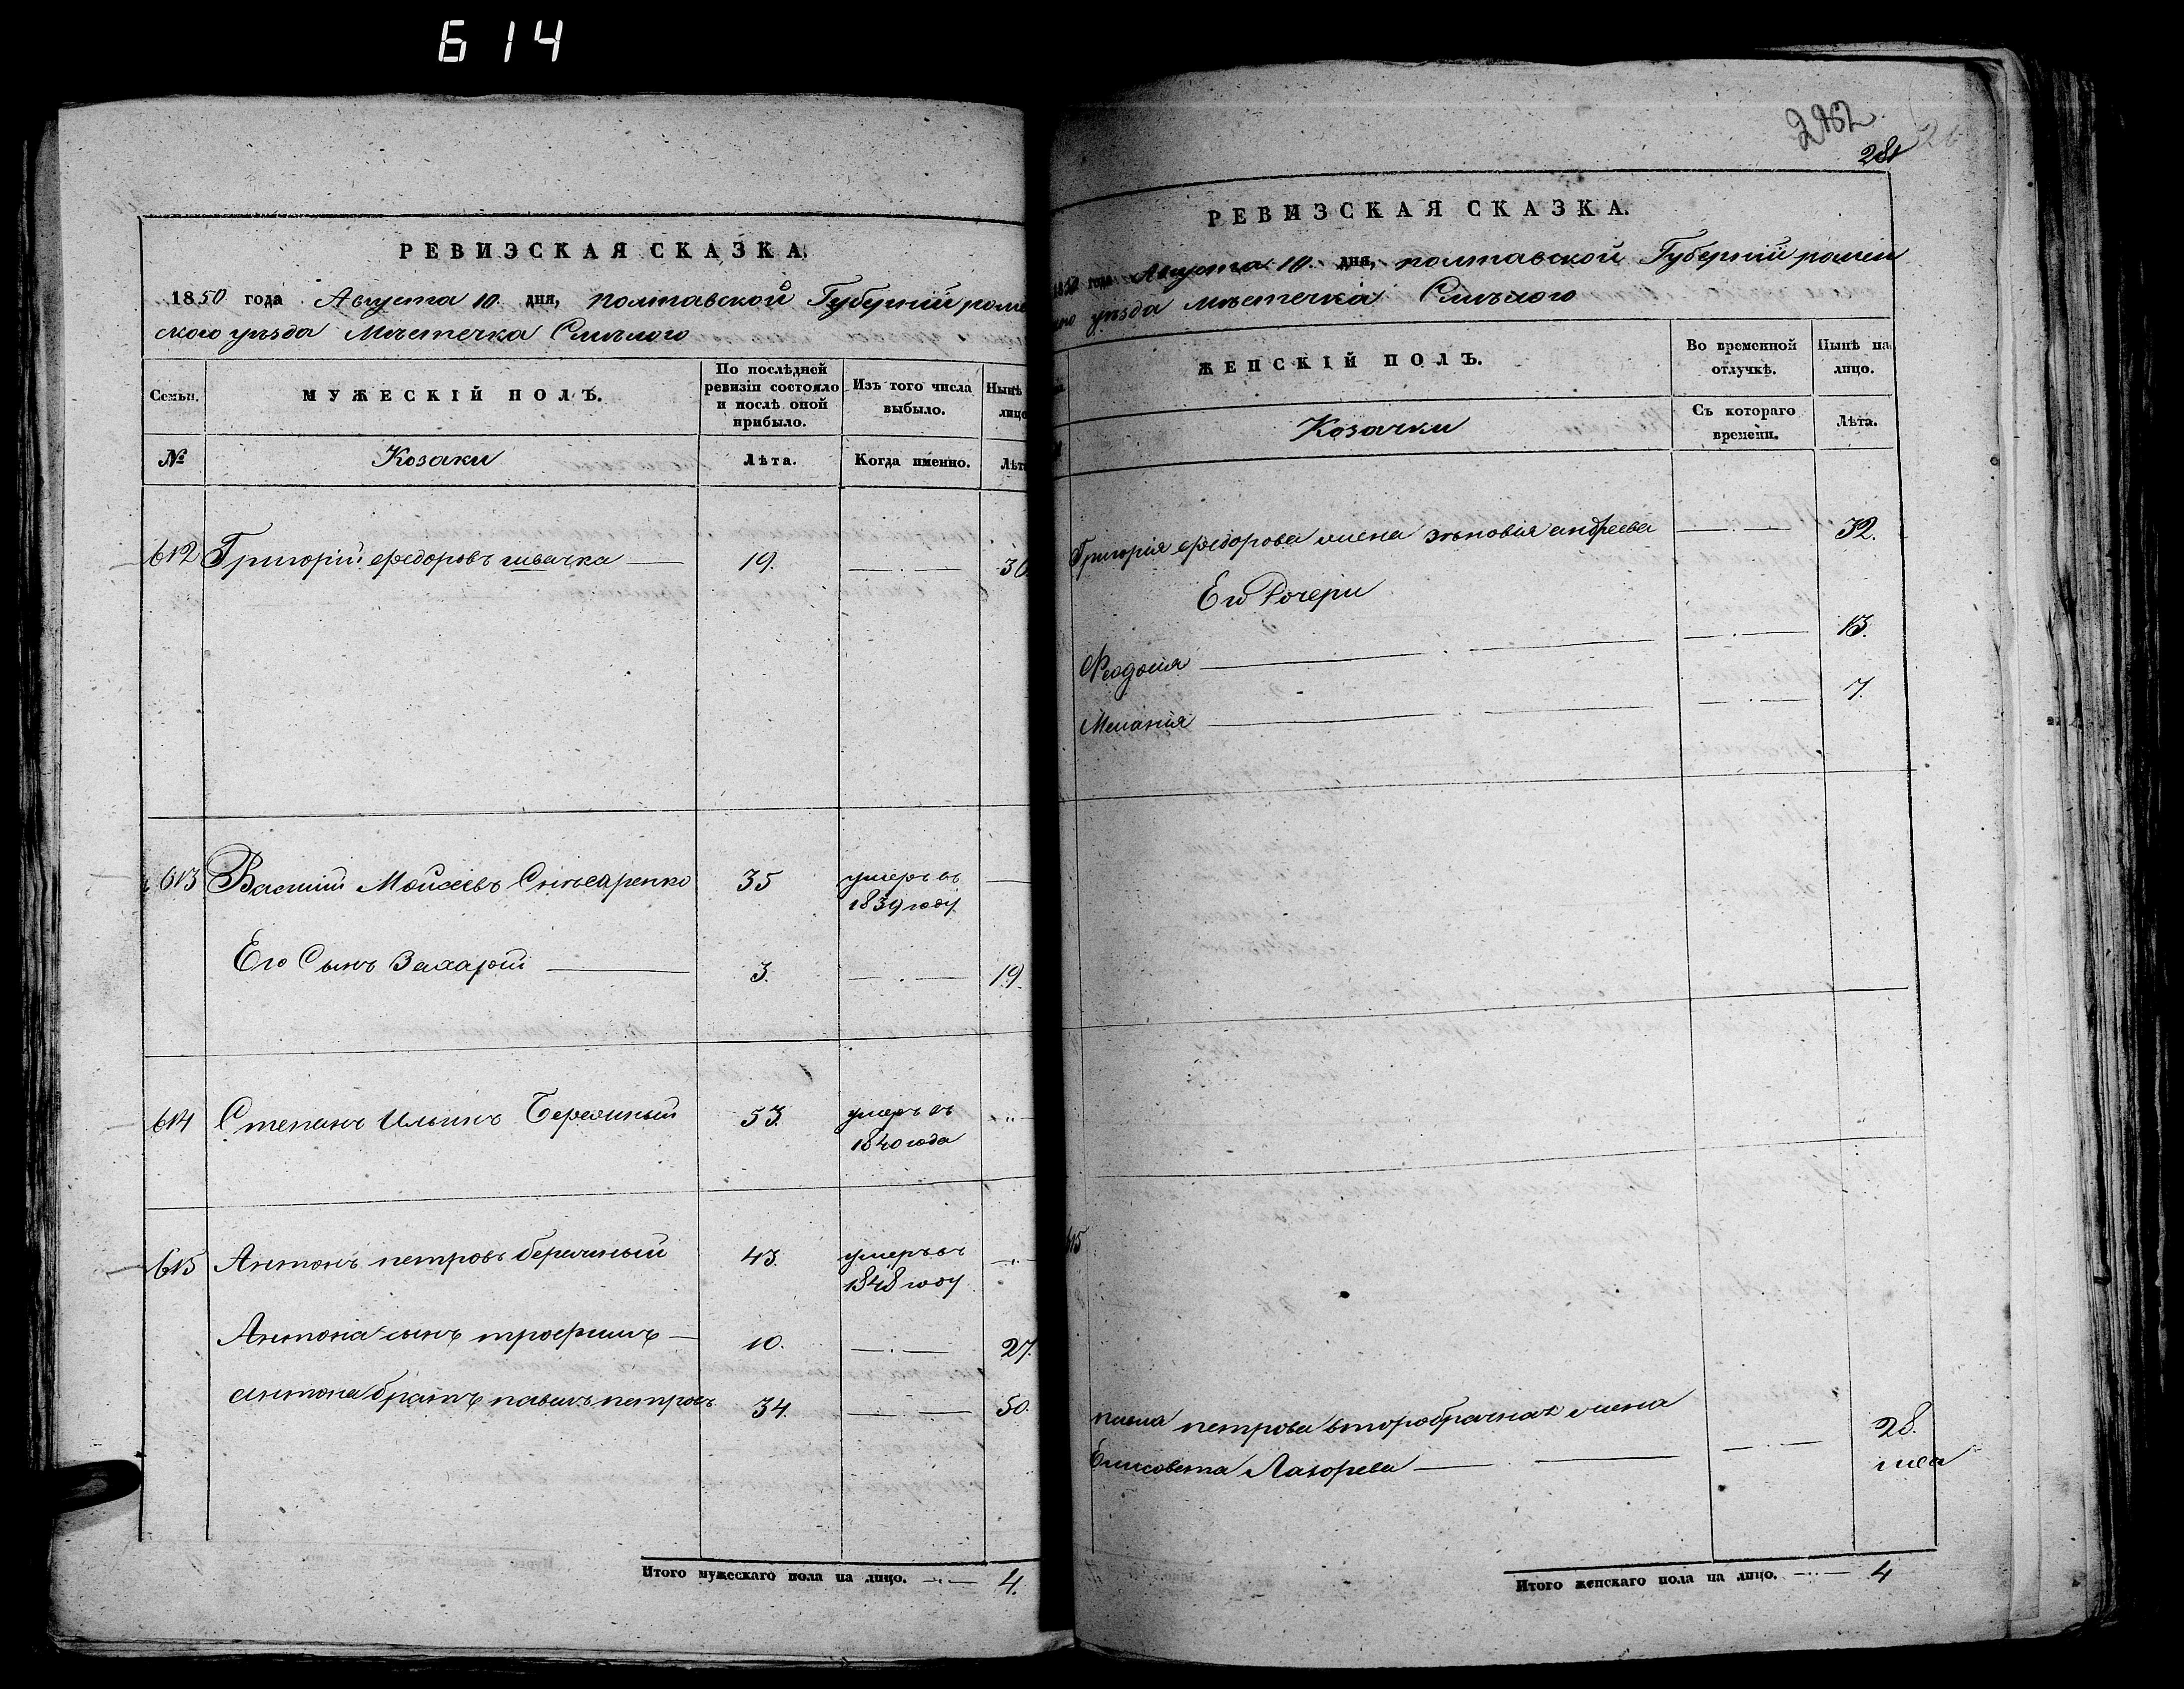 614
РЕВИЗСКАЯ СКАЗКА.
1850 года Августа 10 дня, полтавской Губерніи роме
ского уѣзда Мѣстечка Смѣлого
Семьи.
МУЖЕСКІЙ ПОЛЪ.
По послѣдней ревизіи состояло и послѣ оной прибыло.
Изъ того числа выбыло.
Нынѣ лицо
№
Козаки
Лѣта.
Когда именно.
Лѣт
612 Григорій федоровъ швачка — 19. —.— 30.
613 Василій Мойсеевъ Слѣсаренко 35 умеръ въ —
1839 году
Его Сынъ Захарій — 3. —.— 19.
614 Степанъ Ильинъ Бережный 53. умеръ въ —
1840 года
615 Антонъ петровъ бережный 43. умеръ въ —
1848 году
Антона сынъ трофимъ — 10. —.— 27.
антона братъ павелъ петровъ 34. —.— 50.
Итого мужескаго пола на лицо. — 4.
282
281
РЕВИЗСКАЯ СКАЗКА.
1850 года Августа 10. дня, полтавской Губерніи ромен
ского уѣзда мѣстечка Смѣлого
ЖЕНСКІЙ ПОЛЪ.
Во временной отлучкѣ.
Нынѣ на лицо.
Козачки
Съ котораго времени.
Лѣта.
Григорія федорова жена зѣновія андреева —.— 32.
Его Дочери
Феодосія — —.— 13.
Меланія — —.— 7.
615
павла петрова второбрачная жена 28.
Елисовета Лазорева — —.—
Итого женскаго пола на лицо. — 4